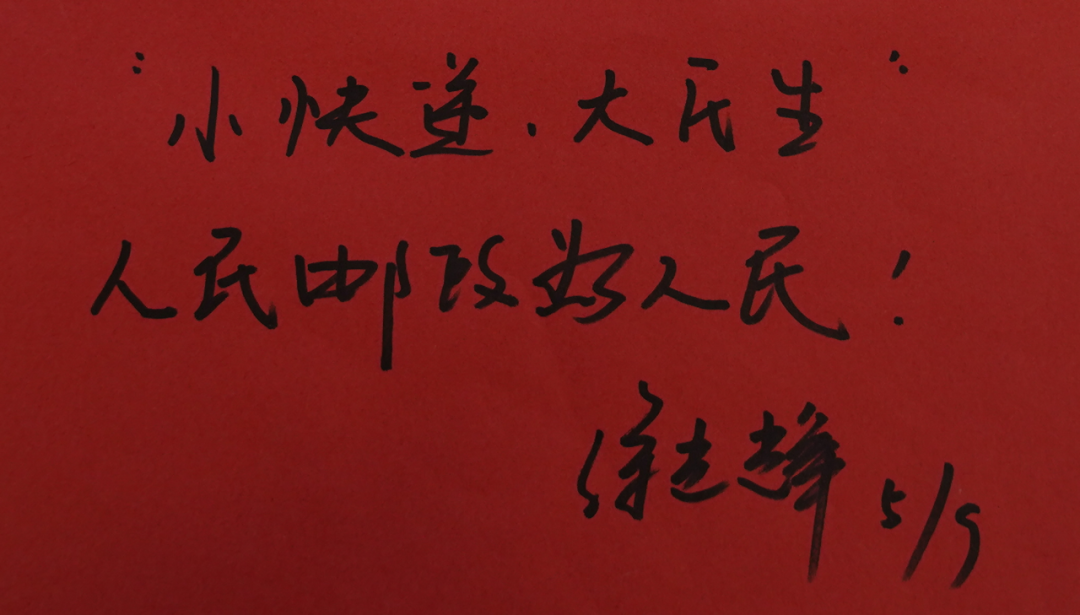 “小快递.大民生”
人民邮政为人民！
徐志辉 5/9